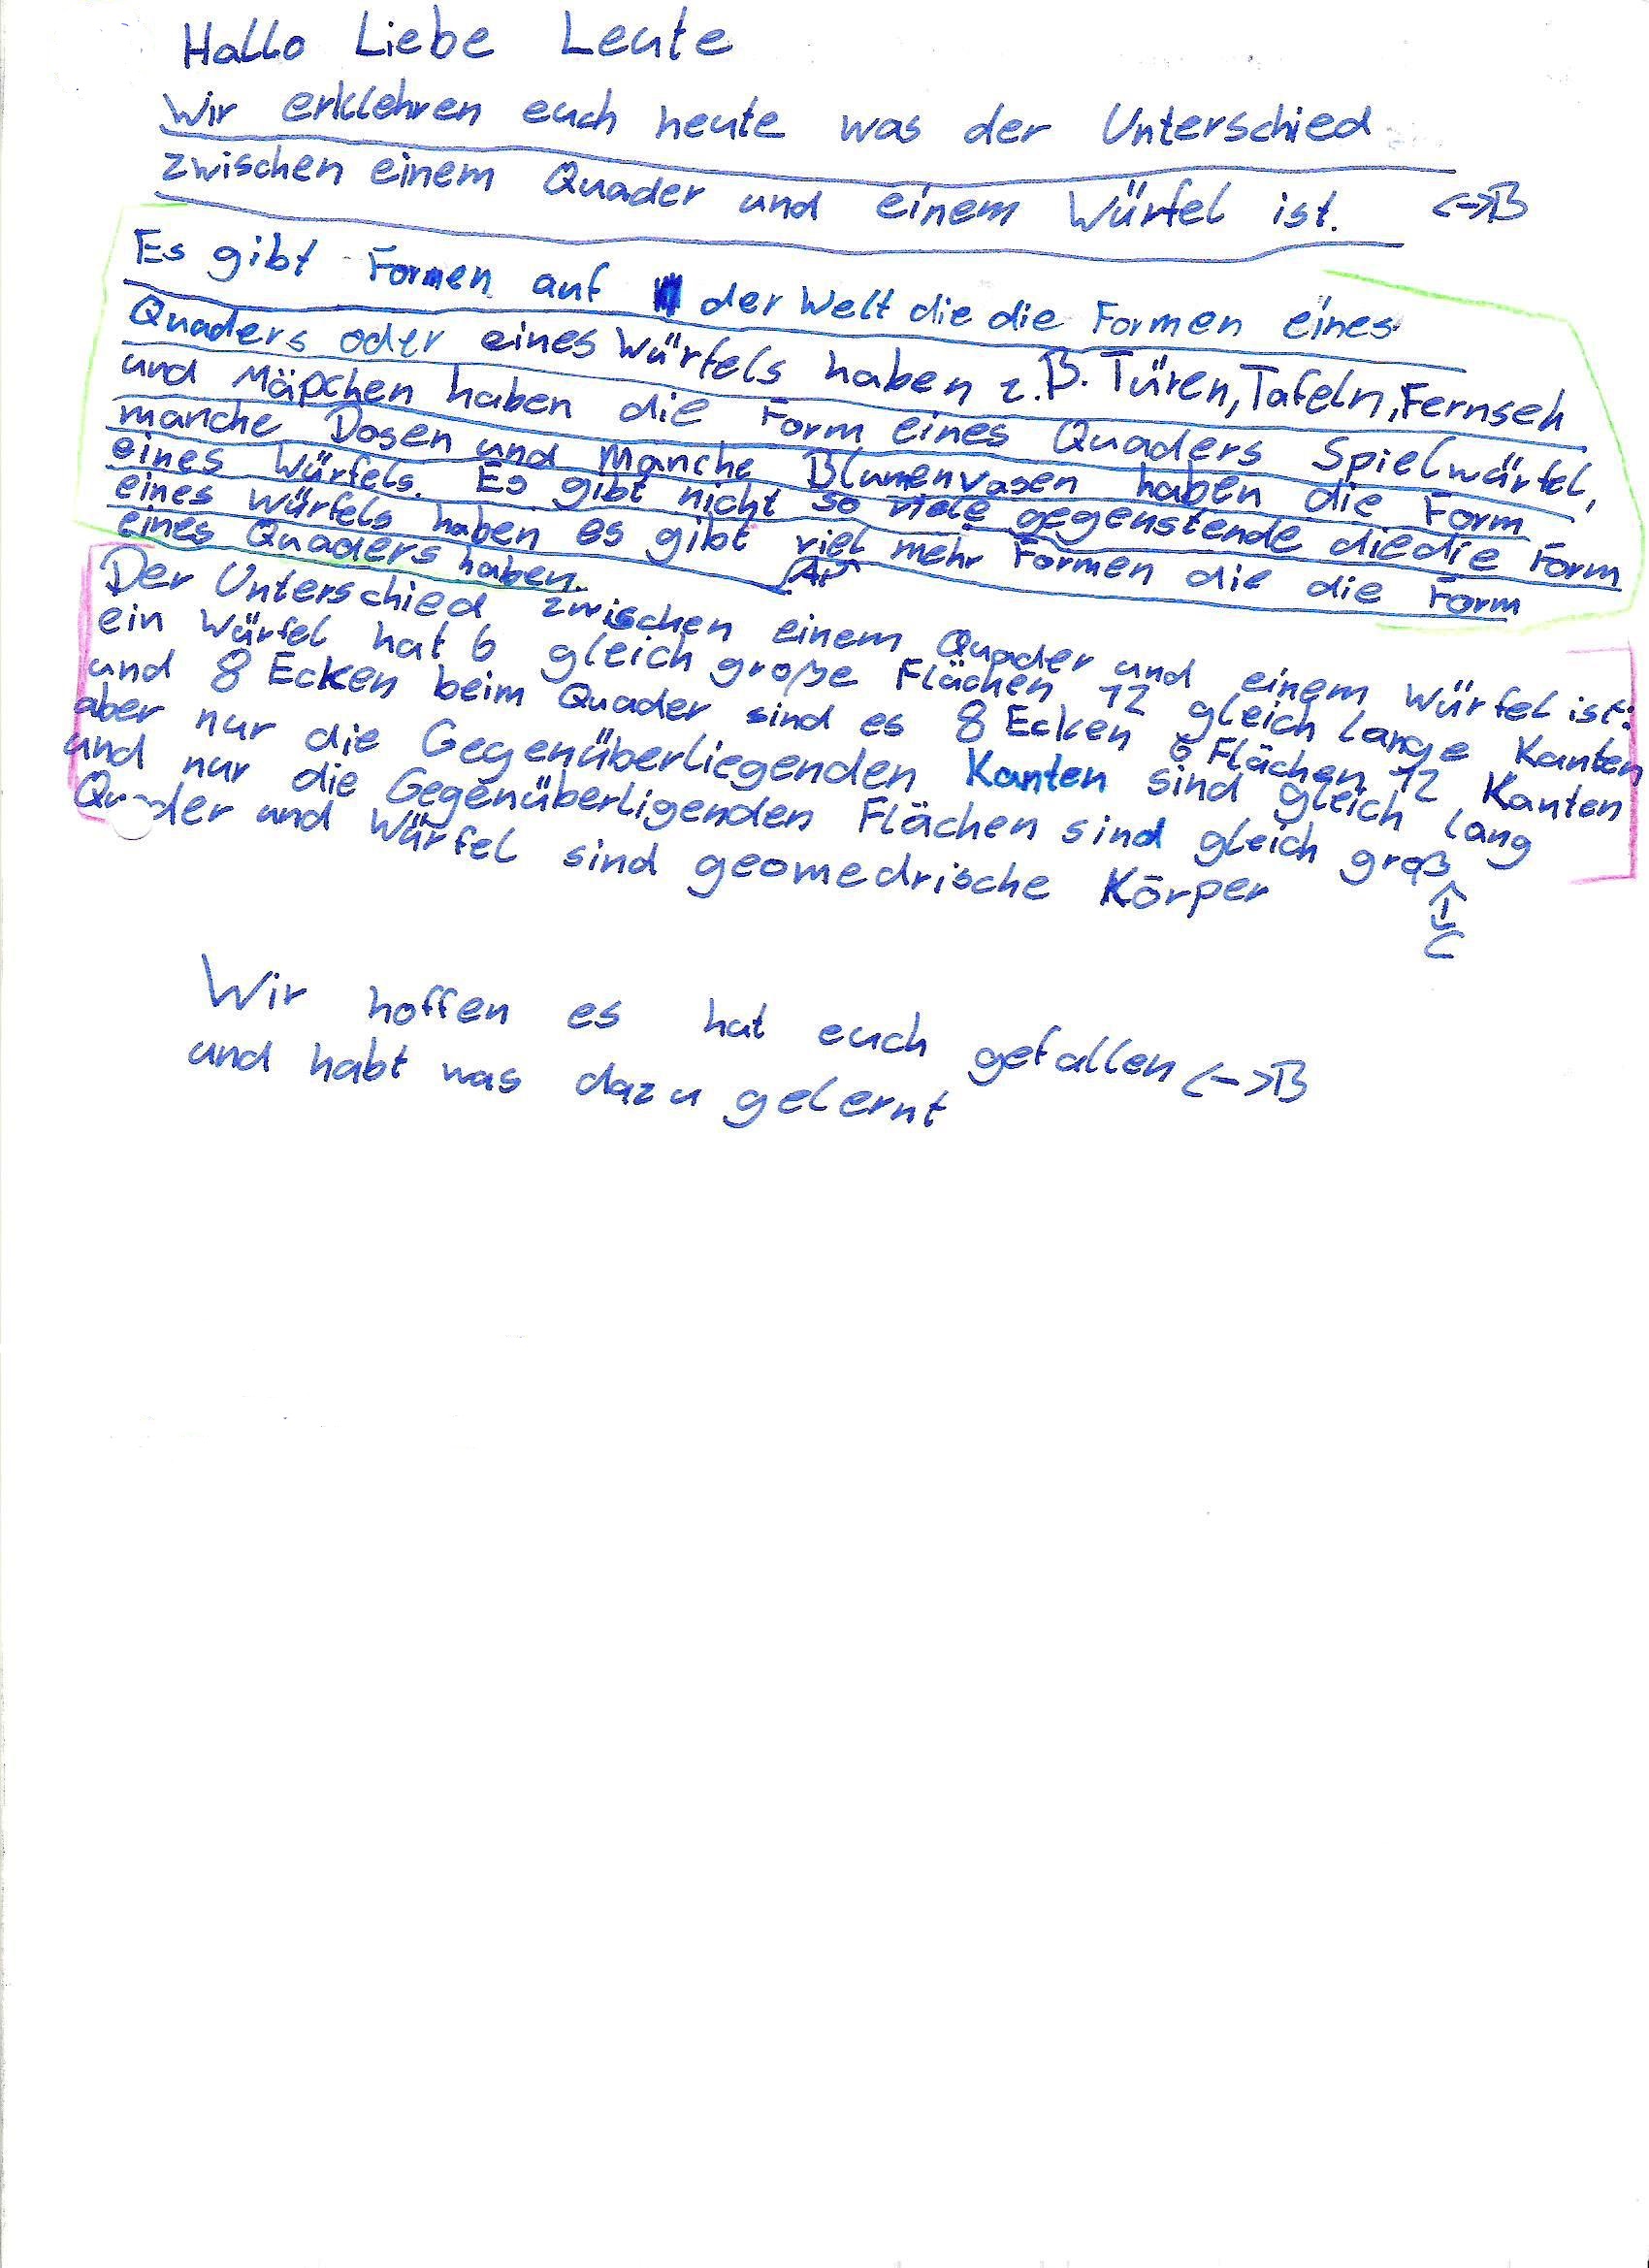 Hallo Liebe Leute
Wir erklehren euch heute was der Unterschied
zwischen einem Quader und einem Würfel ist. <->B
Es gibt Formen auf der Welt die die Formen eines
Quaders oder eines Würfels haben z.B. Türen, Tafeln, Fernseh
und Mäpchen haben die Form eines Quaders Spielwürfel,
manche Dosen und Manche Blumenvasen haben die Form
eines Würfels. Es gibt nicht so viele gegenstende die die Form
eines würfels haben es gibt viel mehr Formen die die Form
eines Quaders haben.
Der Unterschied zwischen einem Quader und einem Würfel ist:
ein Würfel hat 6 gleich große Flächen 12 gleich lange Kanten
und 8 Ecken beim Quader sind es 8 Ecken 6 Flächen 12 Kanten
aber nur die Gegenüberliegenden Kanten sind gleich lang
und nur die Gegenüberligenden Flächen sind gleich groß
<->C
Quader und Würfel sind geomedrische Körper
Wir hoffen es hat euch gefallen <->B
und habt was dazu gelernt